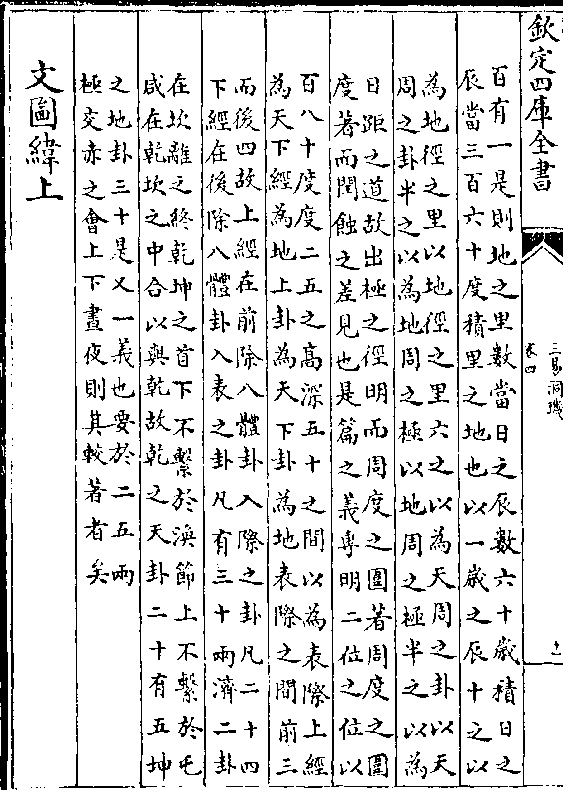 欽定四庫全書
三易洞璣
卷四
百有一是則地之里數當日之辰數六十歳積日之
辰當三百六十度積里之地也以一歳之辰十之以
為地徑之里以地徑之里六之以為天周之卦以天
周之卦半之以為地周之極以地周之極半之以為
日距之道故出極之徑明而周度之圍著周度之圍
度著而閏蝕之差見也是篇之義專明二位之位以
百八十度度二五之高深五十之間以為表際上經
為天下經為地上卦為天下卦為地表際之間前三
而後四故上經在前除八體卦入際之卦凡二十四
下經在後除八體卦入表之卦凡有三十兩濟二卦
在坎離之終乾坤之首下不繫於渙節上不繫於屯
咸在乾坎之中合以與乾故乾之天卦二十有五坤
之地卦三十是又一義也要於二五兩
極交赤之會上下晝夜則其較著者矣
文圖緯上